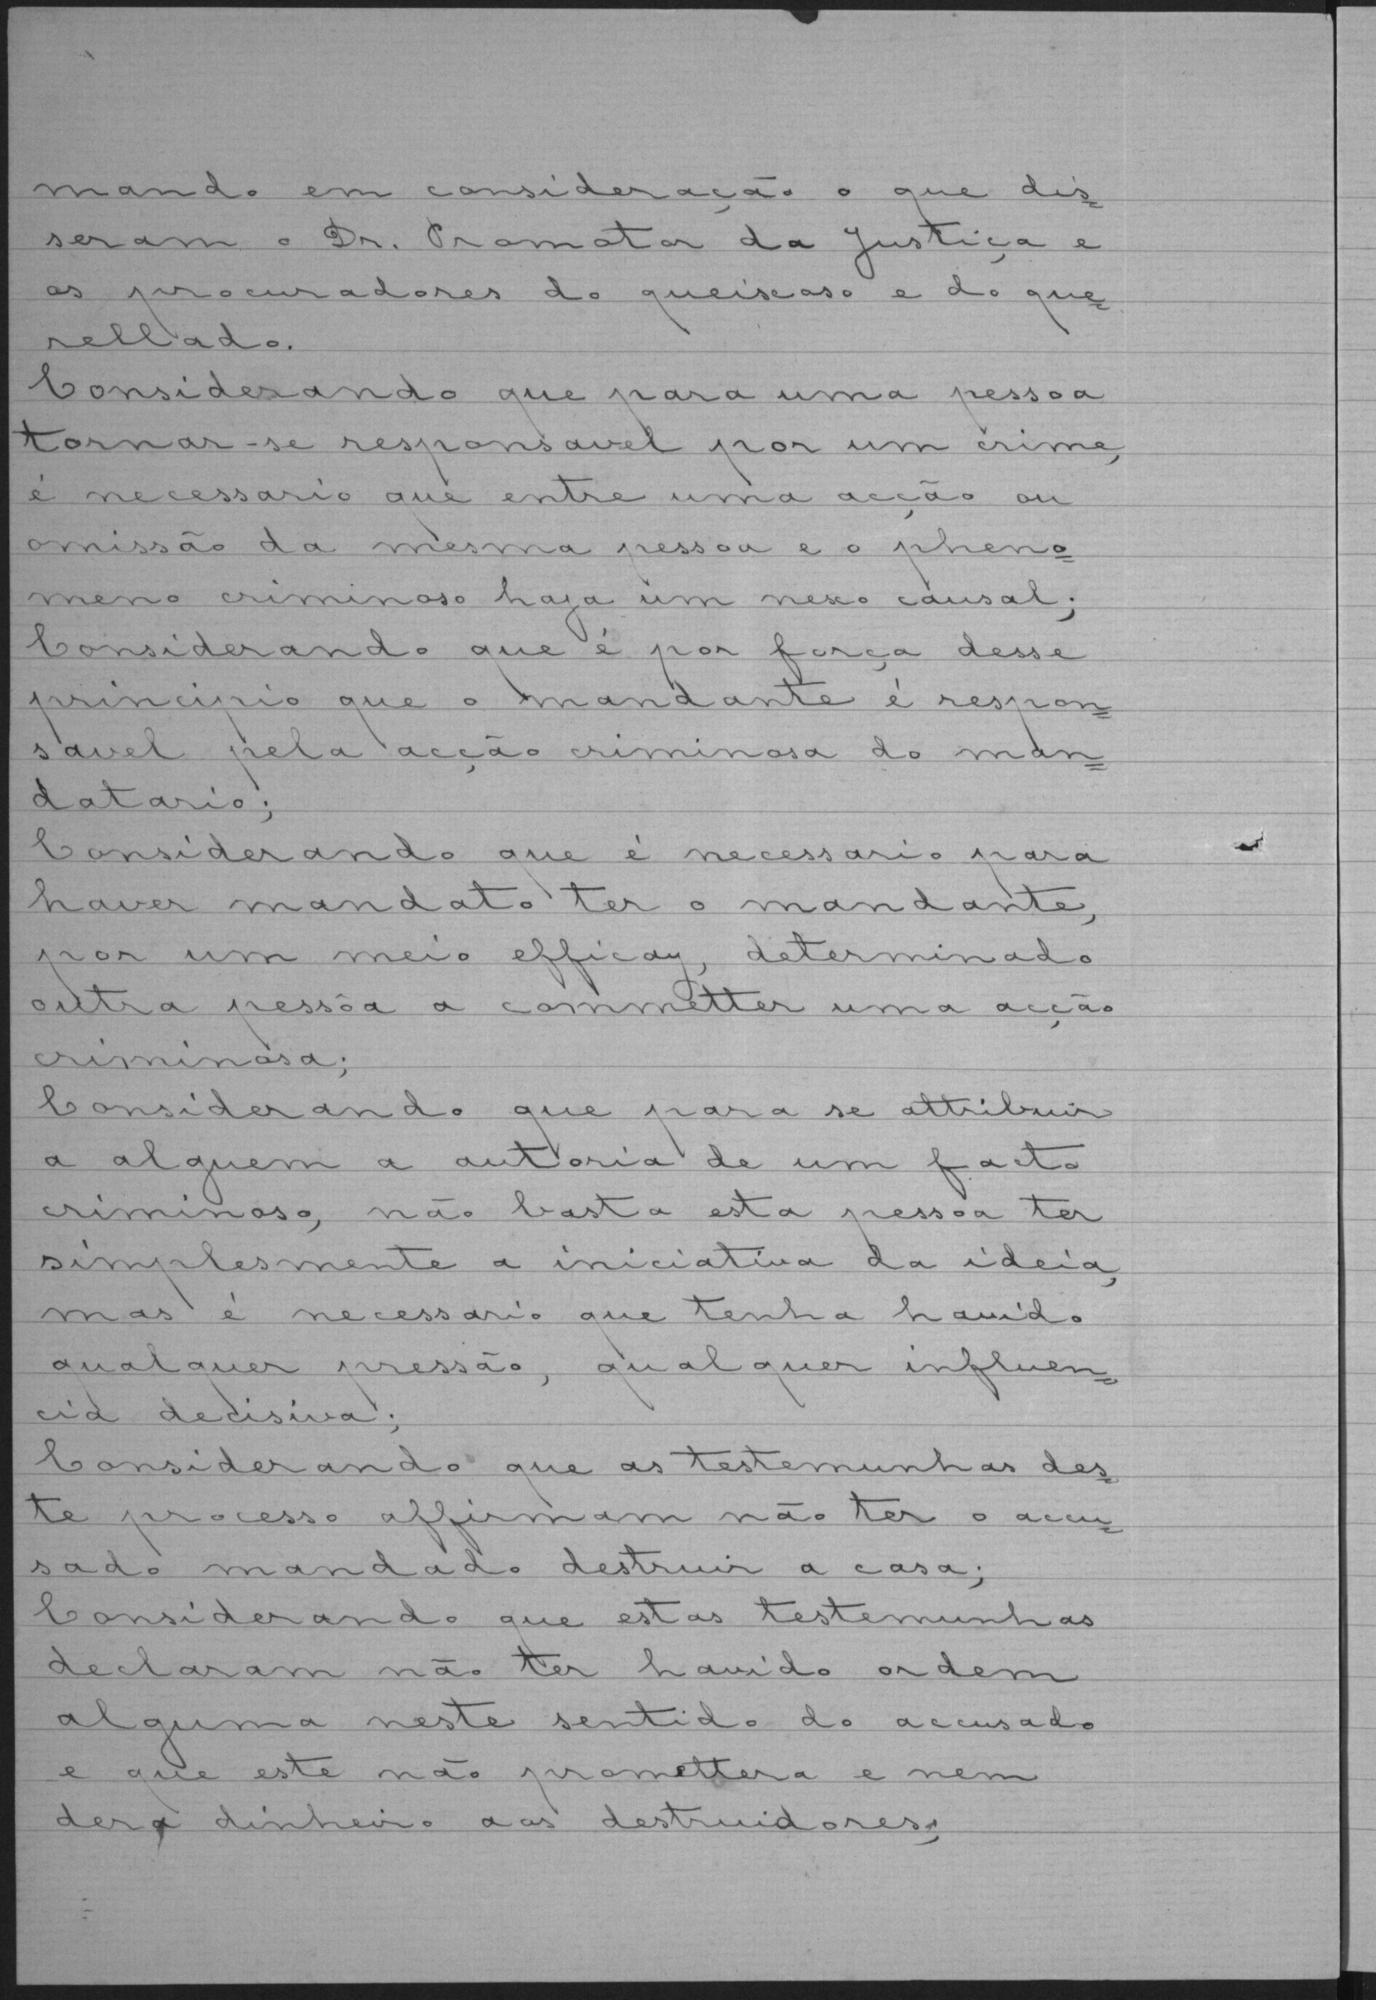 mando em consideração o que dis=
seram o Dr. Promotor da Justiça e
os procuradores do queixoso e do que=
rellado.
Considerando que para uma pessoa
tornar-se responsavel por um crime,
é necessario que entre uma acção ou
omissão da mesma pessoa e o pheno=
meno criminoso haja um nexo causal;
Considerando que é por força desse
principio que o mandante é respon=
savel pela acção criminosa do man=
datario;
Considerando que é necessario para
haver mandato ter o mandante,
por um meio efficaz, determinado
outra pessôa a commetter uma acção
criminosa;
Considerando que para se attribuir
a alguem a autoria de um facto
criminoso, não basta esta pessoa ter
simplesmente a iniciativa da ideia,
mas é necessario que tenha havido
qualquer pressão, qualquer influen=
cia decisiva;
Considerando que as testemunhas des=
te processo affirmam não ter o accu=
sado mandado destruir a casa;
Considerando que estas testemunhas
declaram não ter havido ordem
alguma neste sentido do accusado
e que este não promettera e nem
dera dinheiro aos destruidores;